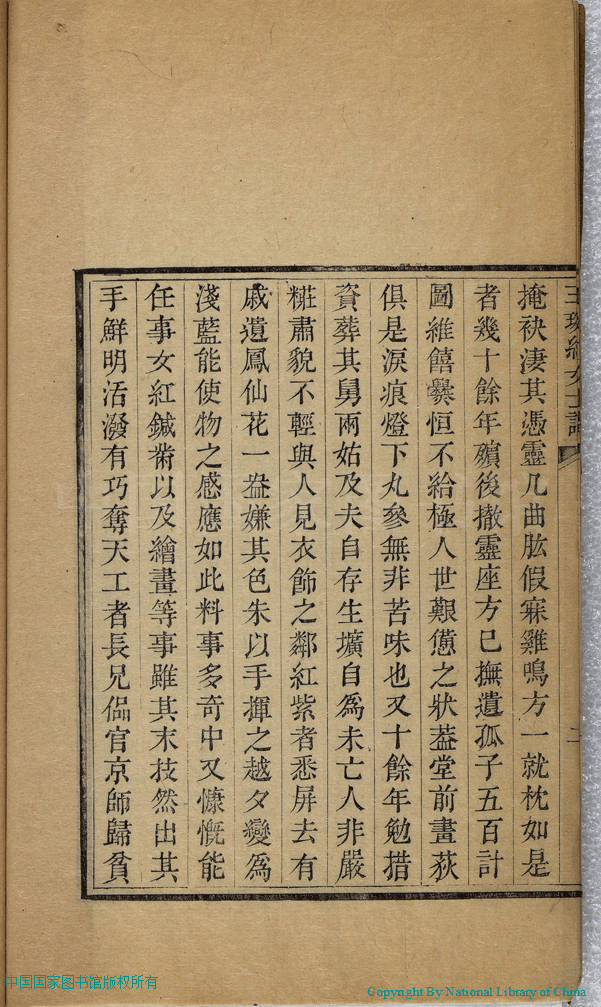 掩袂淒其憑靈几曲肱假寐雞鳴方一就枕如是
者幾十餘年殯後撤靈座方巳撫遺孤子五百計
圖維饎爨恒不給極人世艱憊之狀葢堂前畫荻
俱是淚痕燈下丸參無非苦味也又十餘年勉措
資葬其舅兩姑及夫自存生壙自爲未亡人非嚴
糚肅貌不輕與人見衣飾之鄰紅紫者悉屏去有
戚遺鳳仙花一盎嫌其色朱以手揮之越夕變爲
淺藍能使物之感應如此料事多奇中又慷慨能
任事女紅鍼黹以及繪畫等事雖其末技然出其
手鮮明活潑有巧奪天工者長兄偘官京師歸貧
中国国家图书馆版权所有
Copyright By National Library of China